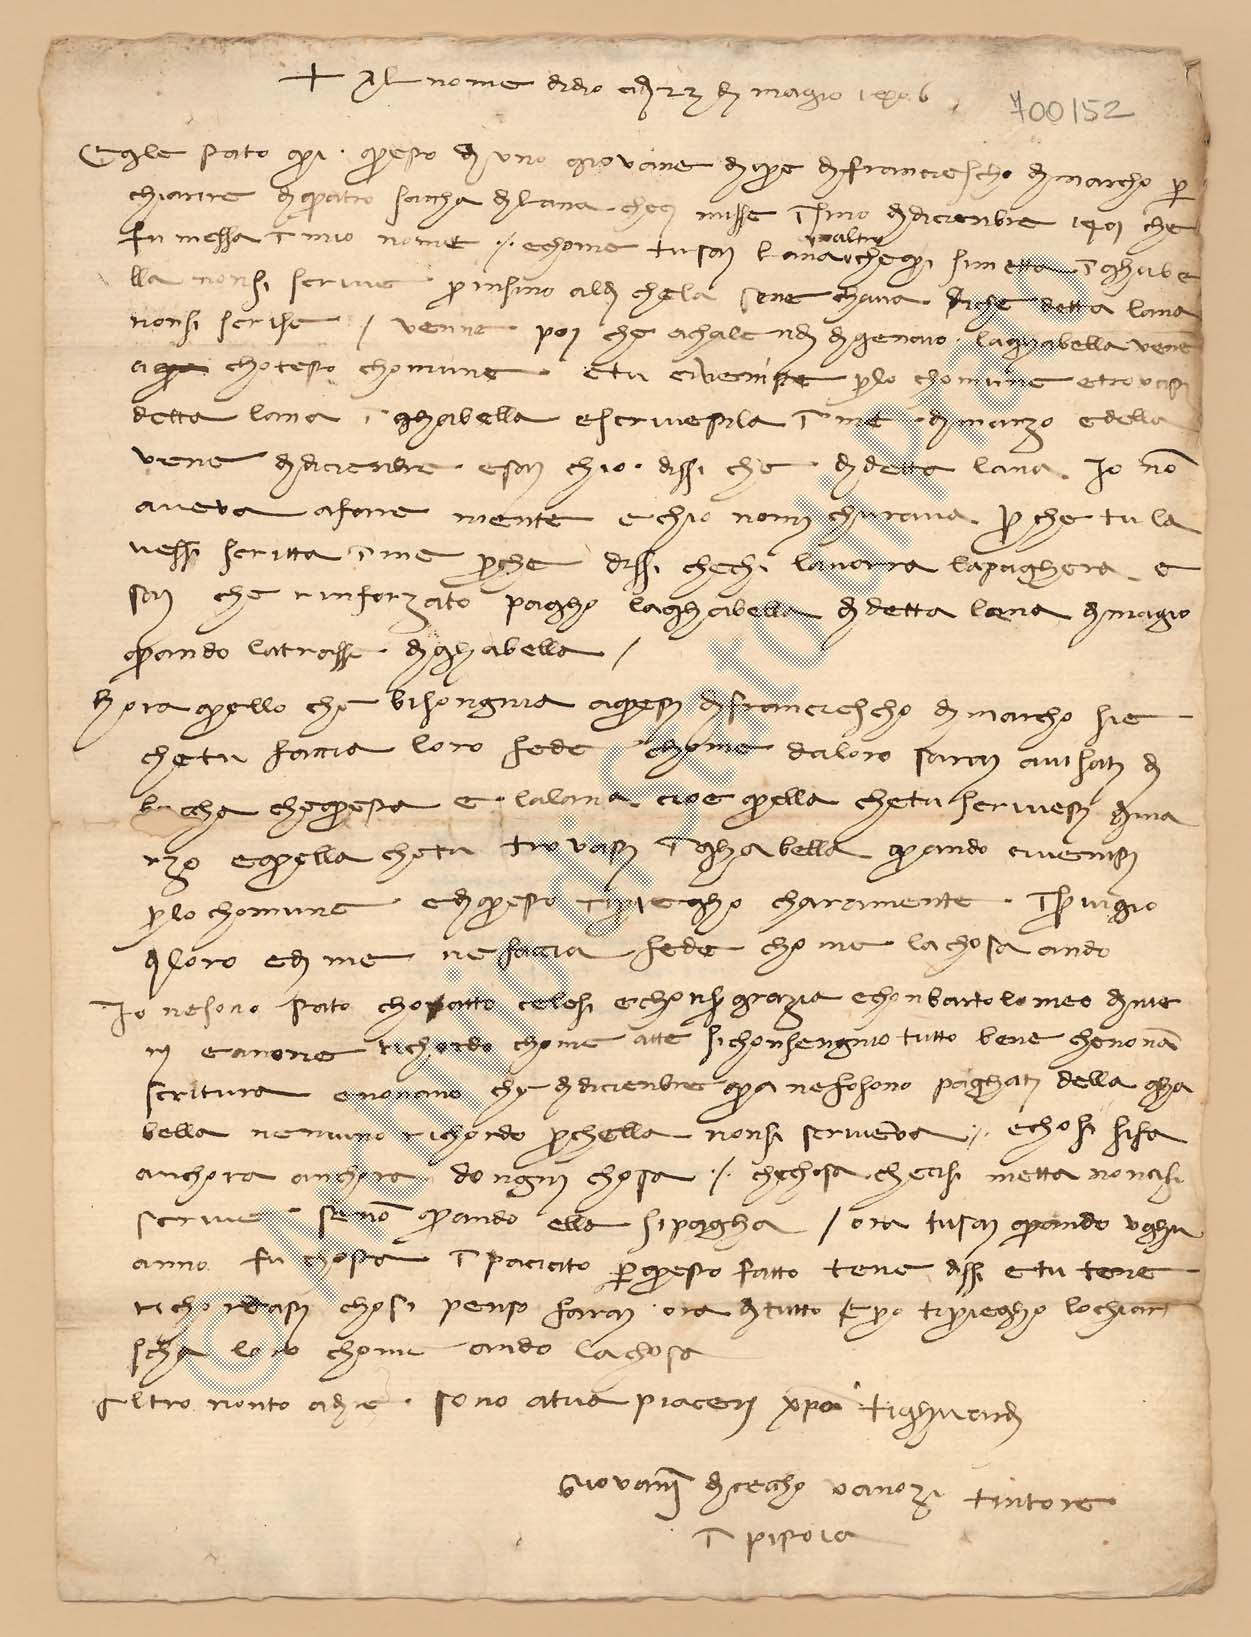 + Al nome di dio a dì 23 di magio 1406
700152
Egle stato qui questo dì uno giovane di que di francescho di marcho per
chiarire di quatro saccha di lana che si misse insino di dicienbre che
fu messa in mio nome e chome tu sai lana o altro che qui si metta in ghabe
lla non si scrive per insino al dì che la se ne chava siche detta lana
non si scrise / venne poi che a chalendi di genaio la ghabella vene
a chotesto chomune e tu ci venisti per lo chomune e trovasti
detta lana in ghabella e scrivestila in me di marzo e della
vene di dicienbre e sai chio dissi che di detta lana Io non
aveva a fare niente e chio non mi churava perche tu la
vessi scritta in me perche dissi chechi lavorra la pagherà e
sai che rinforzato pagho la ghabella di detta lana di magio
quando la trasse di ghabella /
Hora quello che bisongnia a questi di francescho di marcho sie
che tu faccia loro fede chome da loro sarai avisati di
boccha che questa e la lana cioe quella che tu scrivesti di ma
rzo e quella che tu trovasti in ghabella quando ci venisti
per lo chomune e di questo ti priegho charamente in servigio
di loro e di me ne faccia fede chome la chosa ando
Io ne sono stato cho e chon ser grazia e chon bartolomeo di ne
ri e anone richordo chome atte si chonsengnio tutto bene che non a
scritura e non ano che di dicienbre qua ne fosono paghati della gha
bella ne niuno richordo perchella non si scriveva e chosi si fa
anchora anchora dongni chosa / che chosa che ci si metta non ci si
scrive se non quando ella si pagha / ora tu sai quando ughu
anno fu chosta in pacicito per questo fatto te ne dissi e tu te ne
richordasti chosi penso farai ora di tutto E pero ti priegho lo chiari
scha loro chome ando la chosa
Altro non to a dire sono a tua piaceri xpo ti ghuardi
Giovani di ceccho vanozi tintore
in pistoia